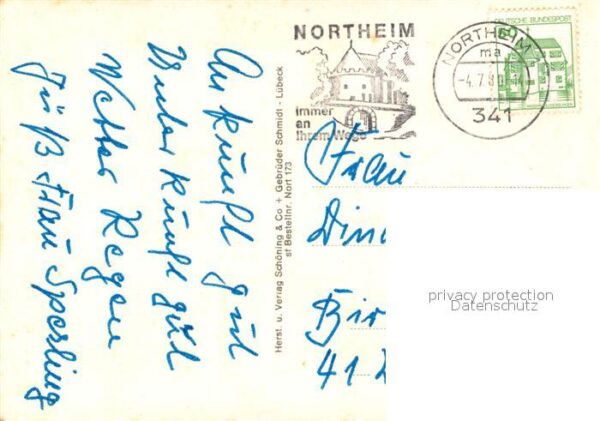 Ankunft gut
Unterkunft gut
Wetter Regen
Grüß Frau Sperling
Herst. u. Verlag Schöning & Co + Gebrüder Schmidt - Lübeck
st Bestellnr. Nort 173
NORTHEIM
Immer
an
Ihrem Wege
NORTHEIM
ma
-4.7.80
341
DEUTSCHE BUNDESPOST
Frau
Din
Bir
41
privacy protection
Datenschutz